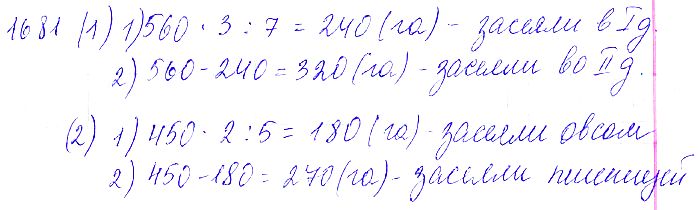 1681 (1) 1) 560 · 3 : 7 = 240 (га) - засеяли в I д.
2) 560 - 240 = 320 (га) - засеяли во II д.
(2) 1) 450 · 2 : 5 = 180 (га) - засеяли овсом
2) 450 - 180 = 270 (га) - засеяли пшеницей